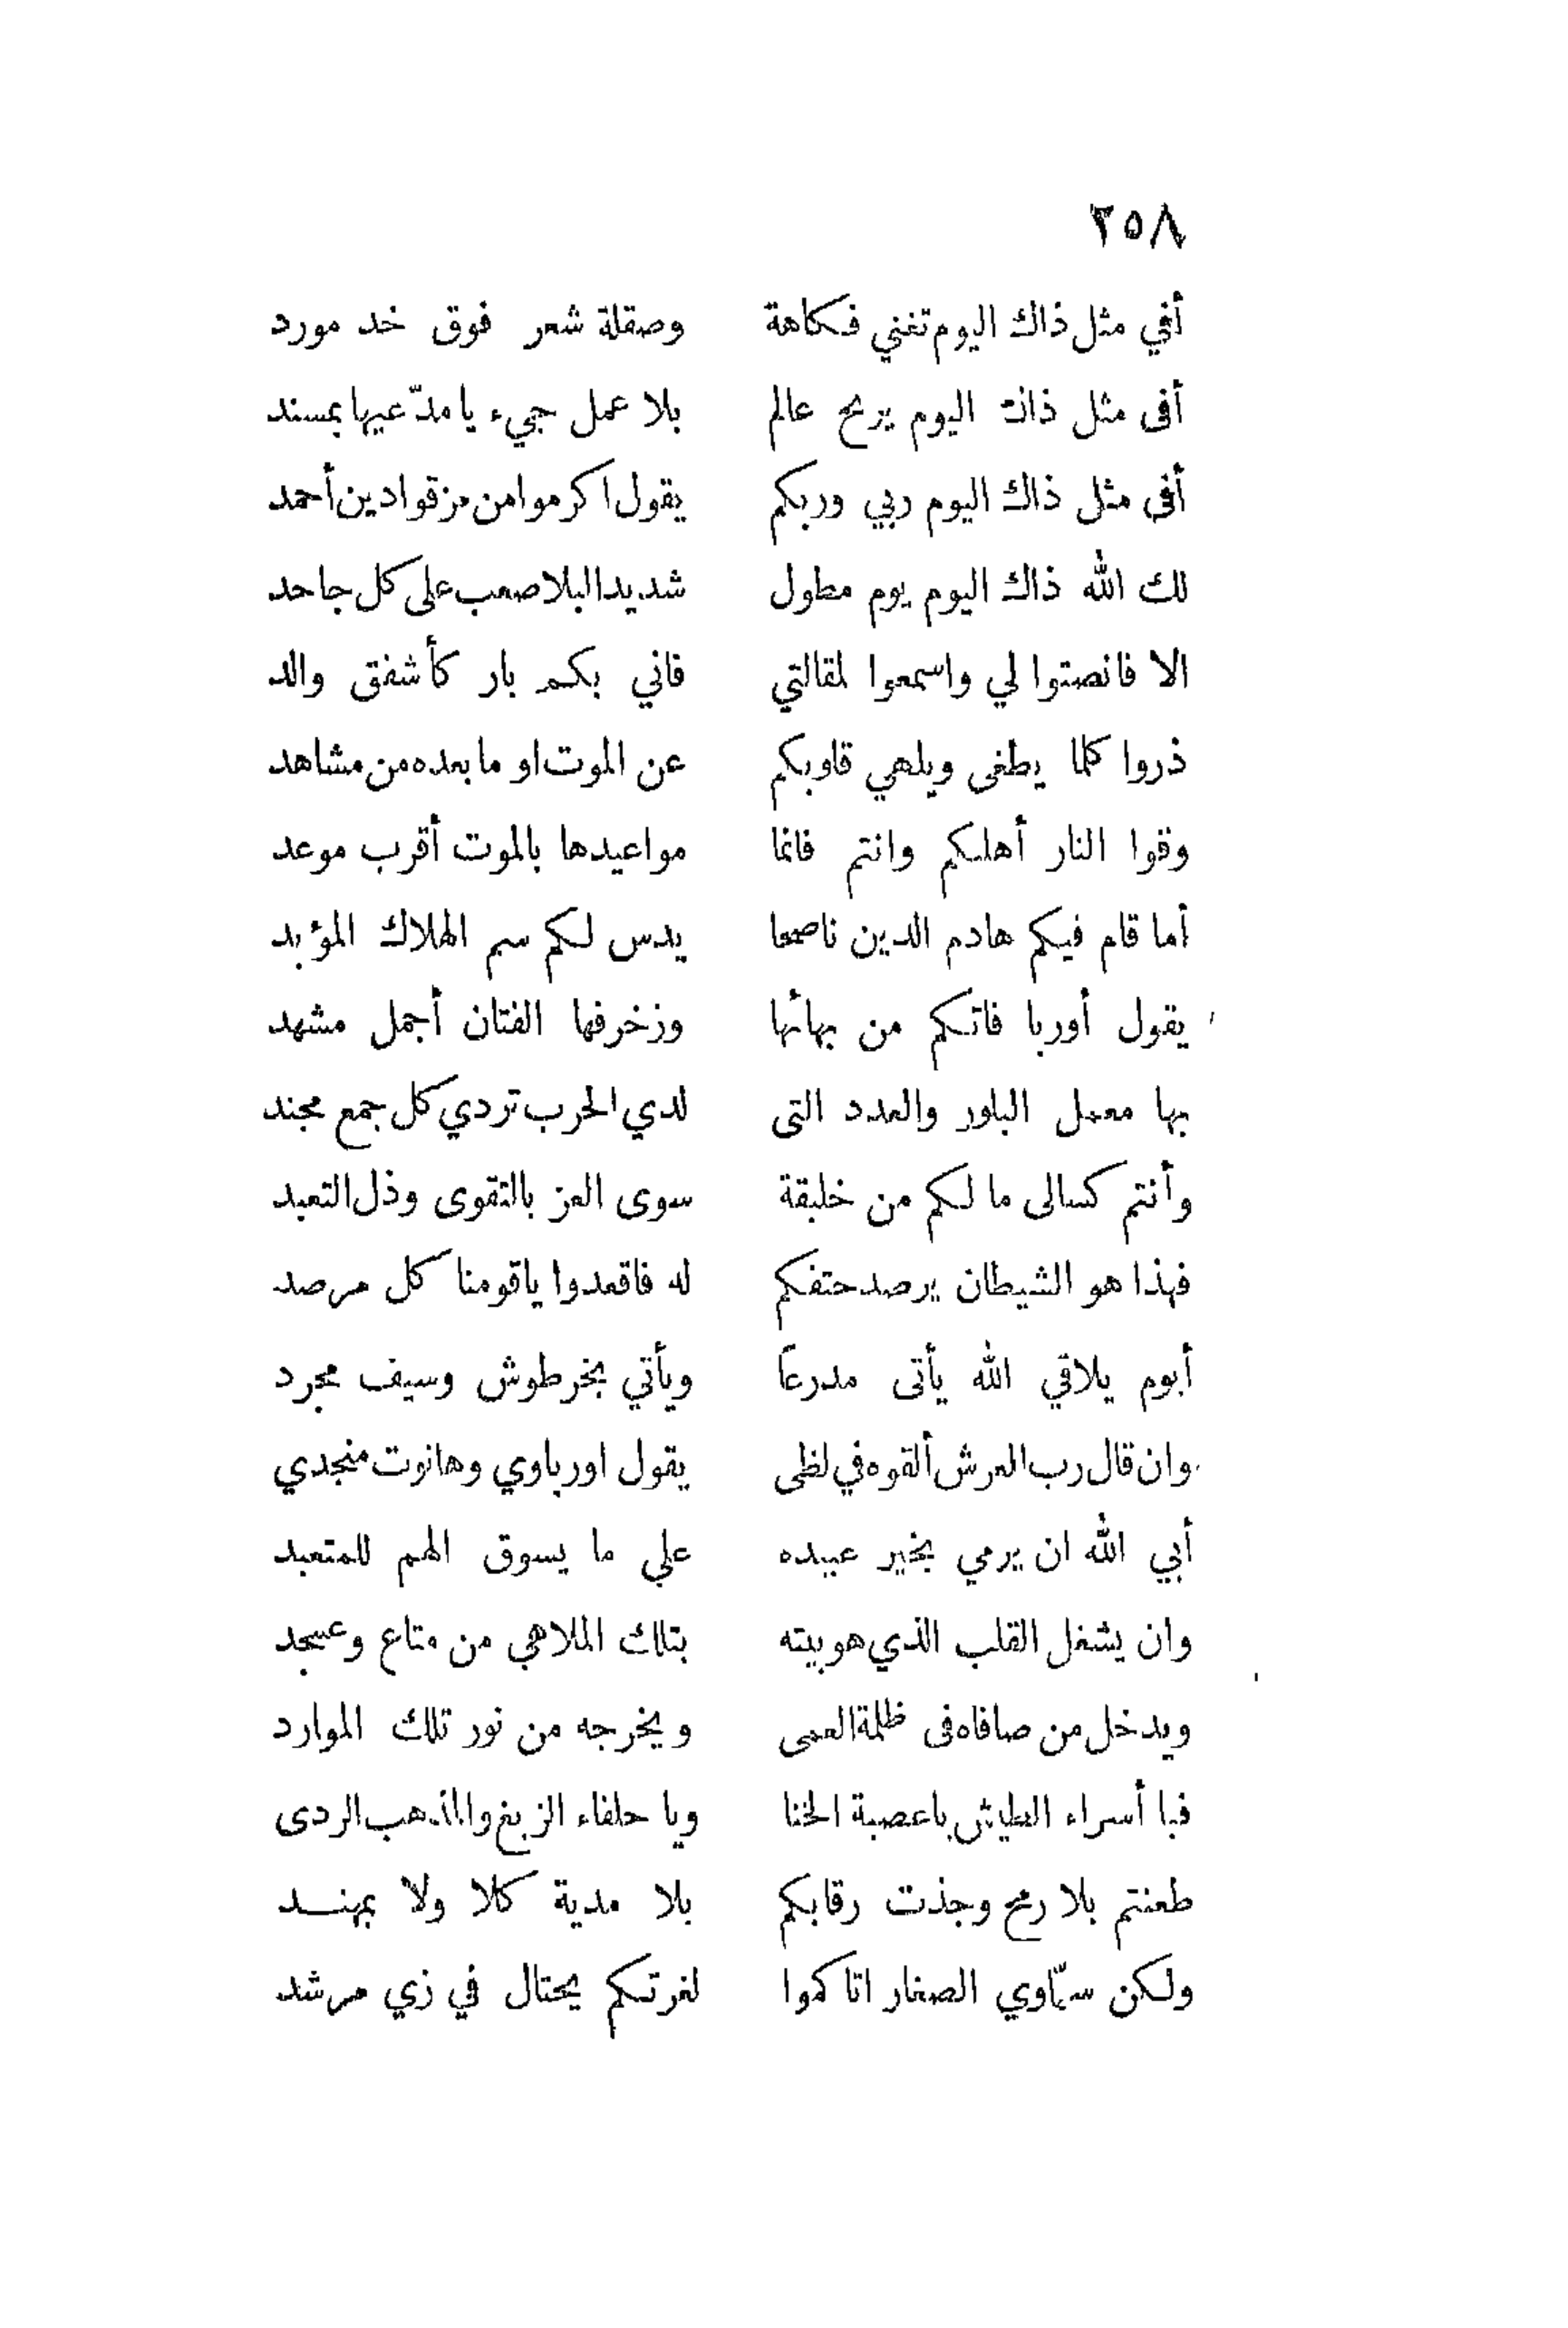 ٢٥٨
أفي مثل ذاك اليوم تغني فكاهة وصقلة شعر فوق خد مورد
أفى مثل ذاك اليوم يربح عالم بلا عمل جيء يا مدّعيها بمسند
أفى مثل ذاك اليوم ربي وربكم يقول اكرموا من مزقوا دين أحمد
لك الله ذاك اليوم يوم مطول شديد البلا صعب على كل جاحد
الا فانصتوا لي واسمعوا لمقالتي فاني بكم بار كأشفق والد
ذروا كلما يطغى ويلهي قلوبكم عن الموت او ما بعده من مشاهد
وقوا النار أهليكم وانتم فانما مواعيدها بالموت أقرب موعد
أما قام فيكم هادم الدين ناصحا يدس لكم سم الهلاك المؤبد
يقول أوربا فاتكم من بهائها وزخرفها الفتان أجمل مشهد
بها معمل البلور والعدد التى لدي الحرب تردي كل جمع مجند
وأنتم كسالى ما لكم من خليقة سوى العز بالتقوى وذل التعبد
فهذا هو الشيطان يرصد حتفكم له فاقعدوا ياقومنا كل مرصد
أيوم يلاقي الله يأتى مدرعاً ويأتي بخرطوش وسيف مجرد
وان قال رب العرش ألقوه في لظى يقول اورباوي وهانوت منجدي
أبي الله ان يرمي بخير عبيده علي ما يسوق الهم للمتعبد
وان يشغل القلب الذي هو بيته بتلك الملاهي من متاع وعسجد
ويدخل من صافاه فى ظلمة العمى ويخرجه من نور تلك الموارد
فيا أسراء الطيش ياعصبة الخنا ويا حلفاء الزيغ والمذهب الردى
طعنتم بلا رمح وجذت رقابكم بلا مدية كلا ولا بمهند
ولكن سمّاوي الصغار اتاكموا لغرتكم يحتال في زي مرشد